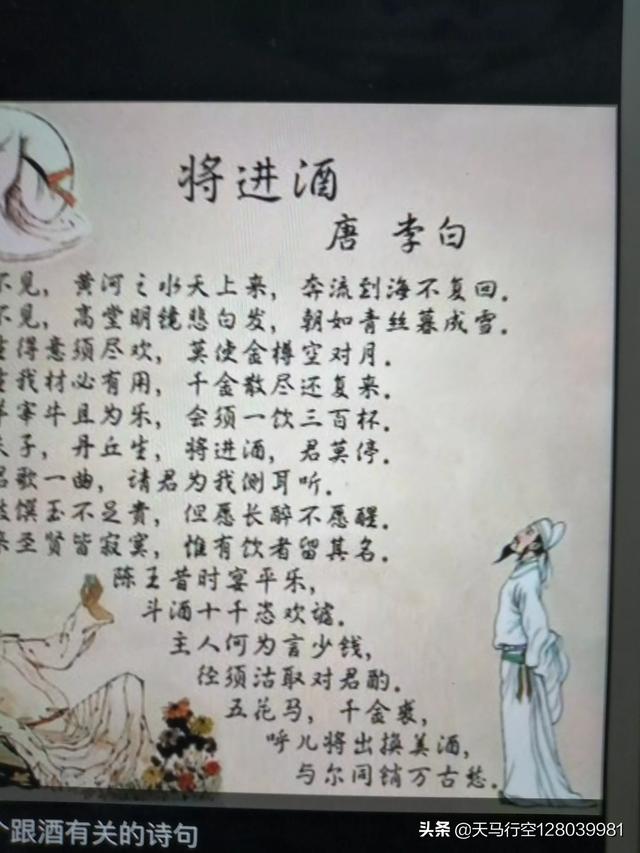 将进酒
唐 李白
不见，黄河之水天上来，奔流到海不复回。
不见，高堂明镜悲白发，朝如青丝暮成雪。
得意须尽欢，莫使金樽空对月。
我材必有用，千金散尽还复来。
宰牛且为乐，会须一饮三百杯。
夫子，丹丘生，将进酒，君莫停。
歌一曲，请君为我侧耳听。
馔玉不足贵，但愿长醉不愿醒。
来圣贤皆寂寞，惟有饮者留其名。
陈王昔时宴平乐，
斗酒十千恣欢谑。
主人何为言少钱，
径须沽取对君酌。
五花马，千金裘，
呼儿将出换美酒，
与尔同销万古愁。
个跟酒有关的诗句
头条 @天马行空128039981